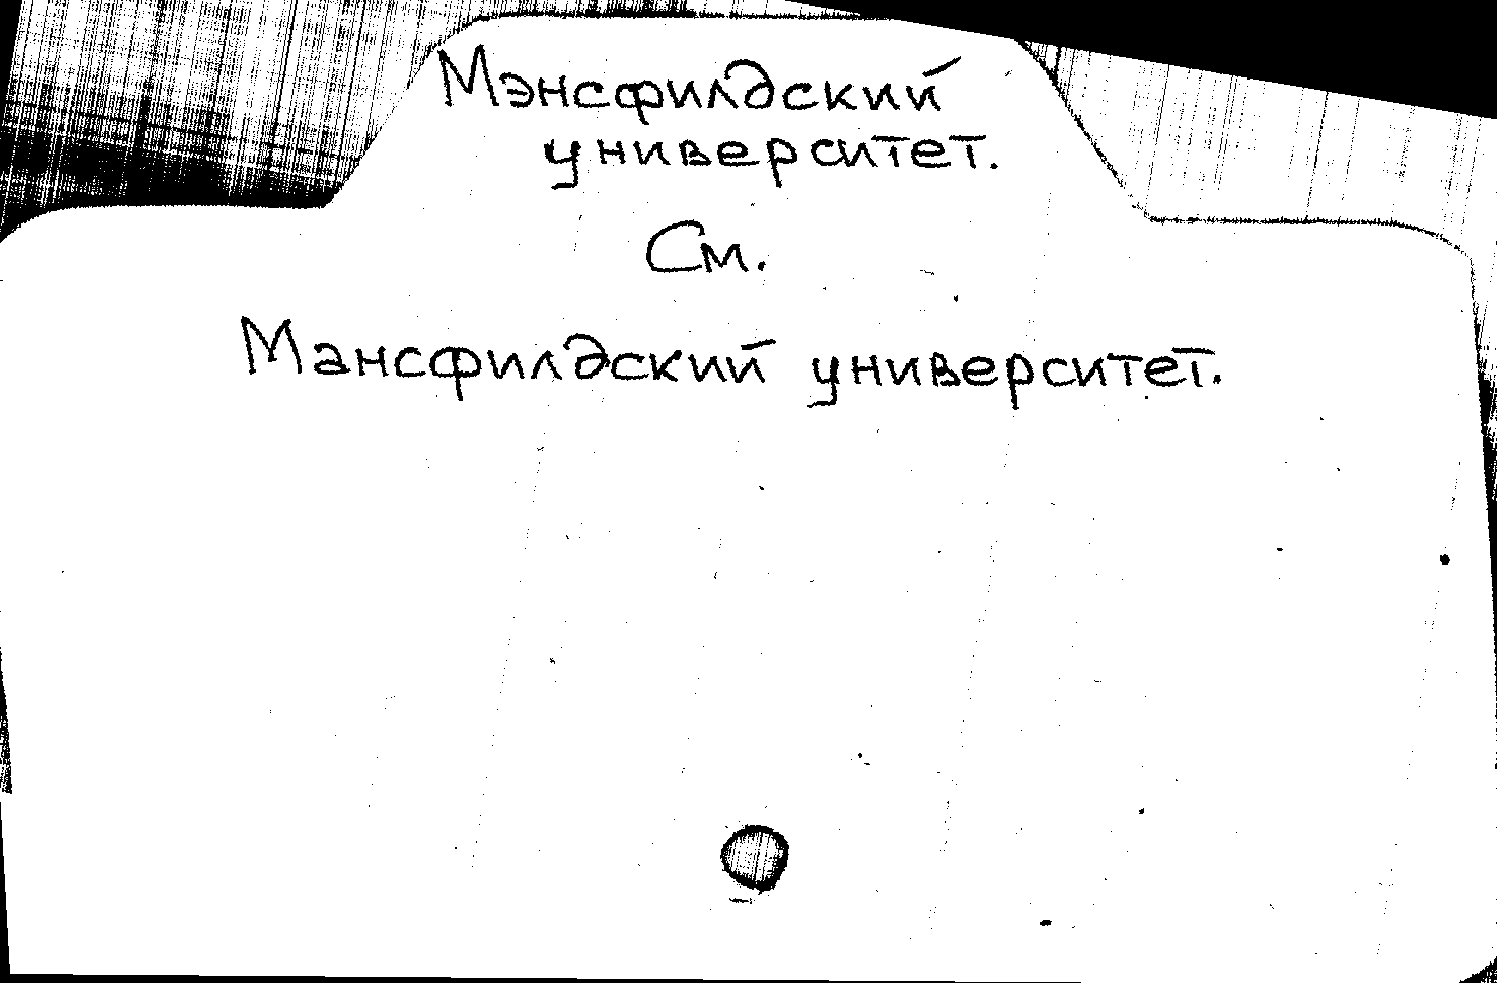 Мэнсфилдский
университет.
См.
Мансфилдский университет.